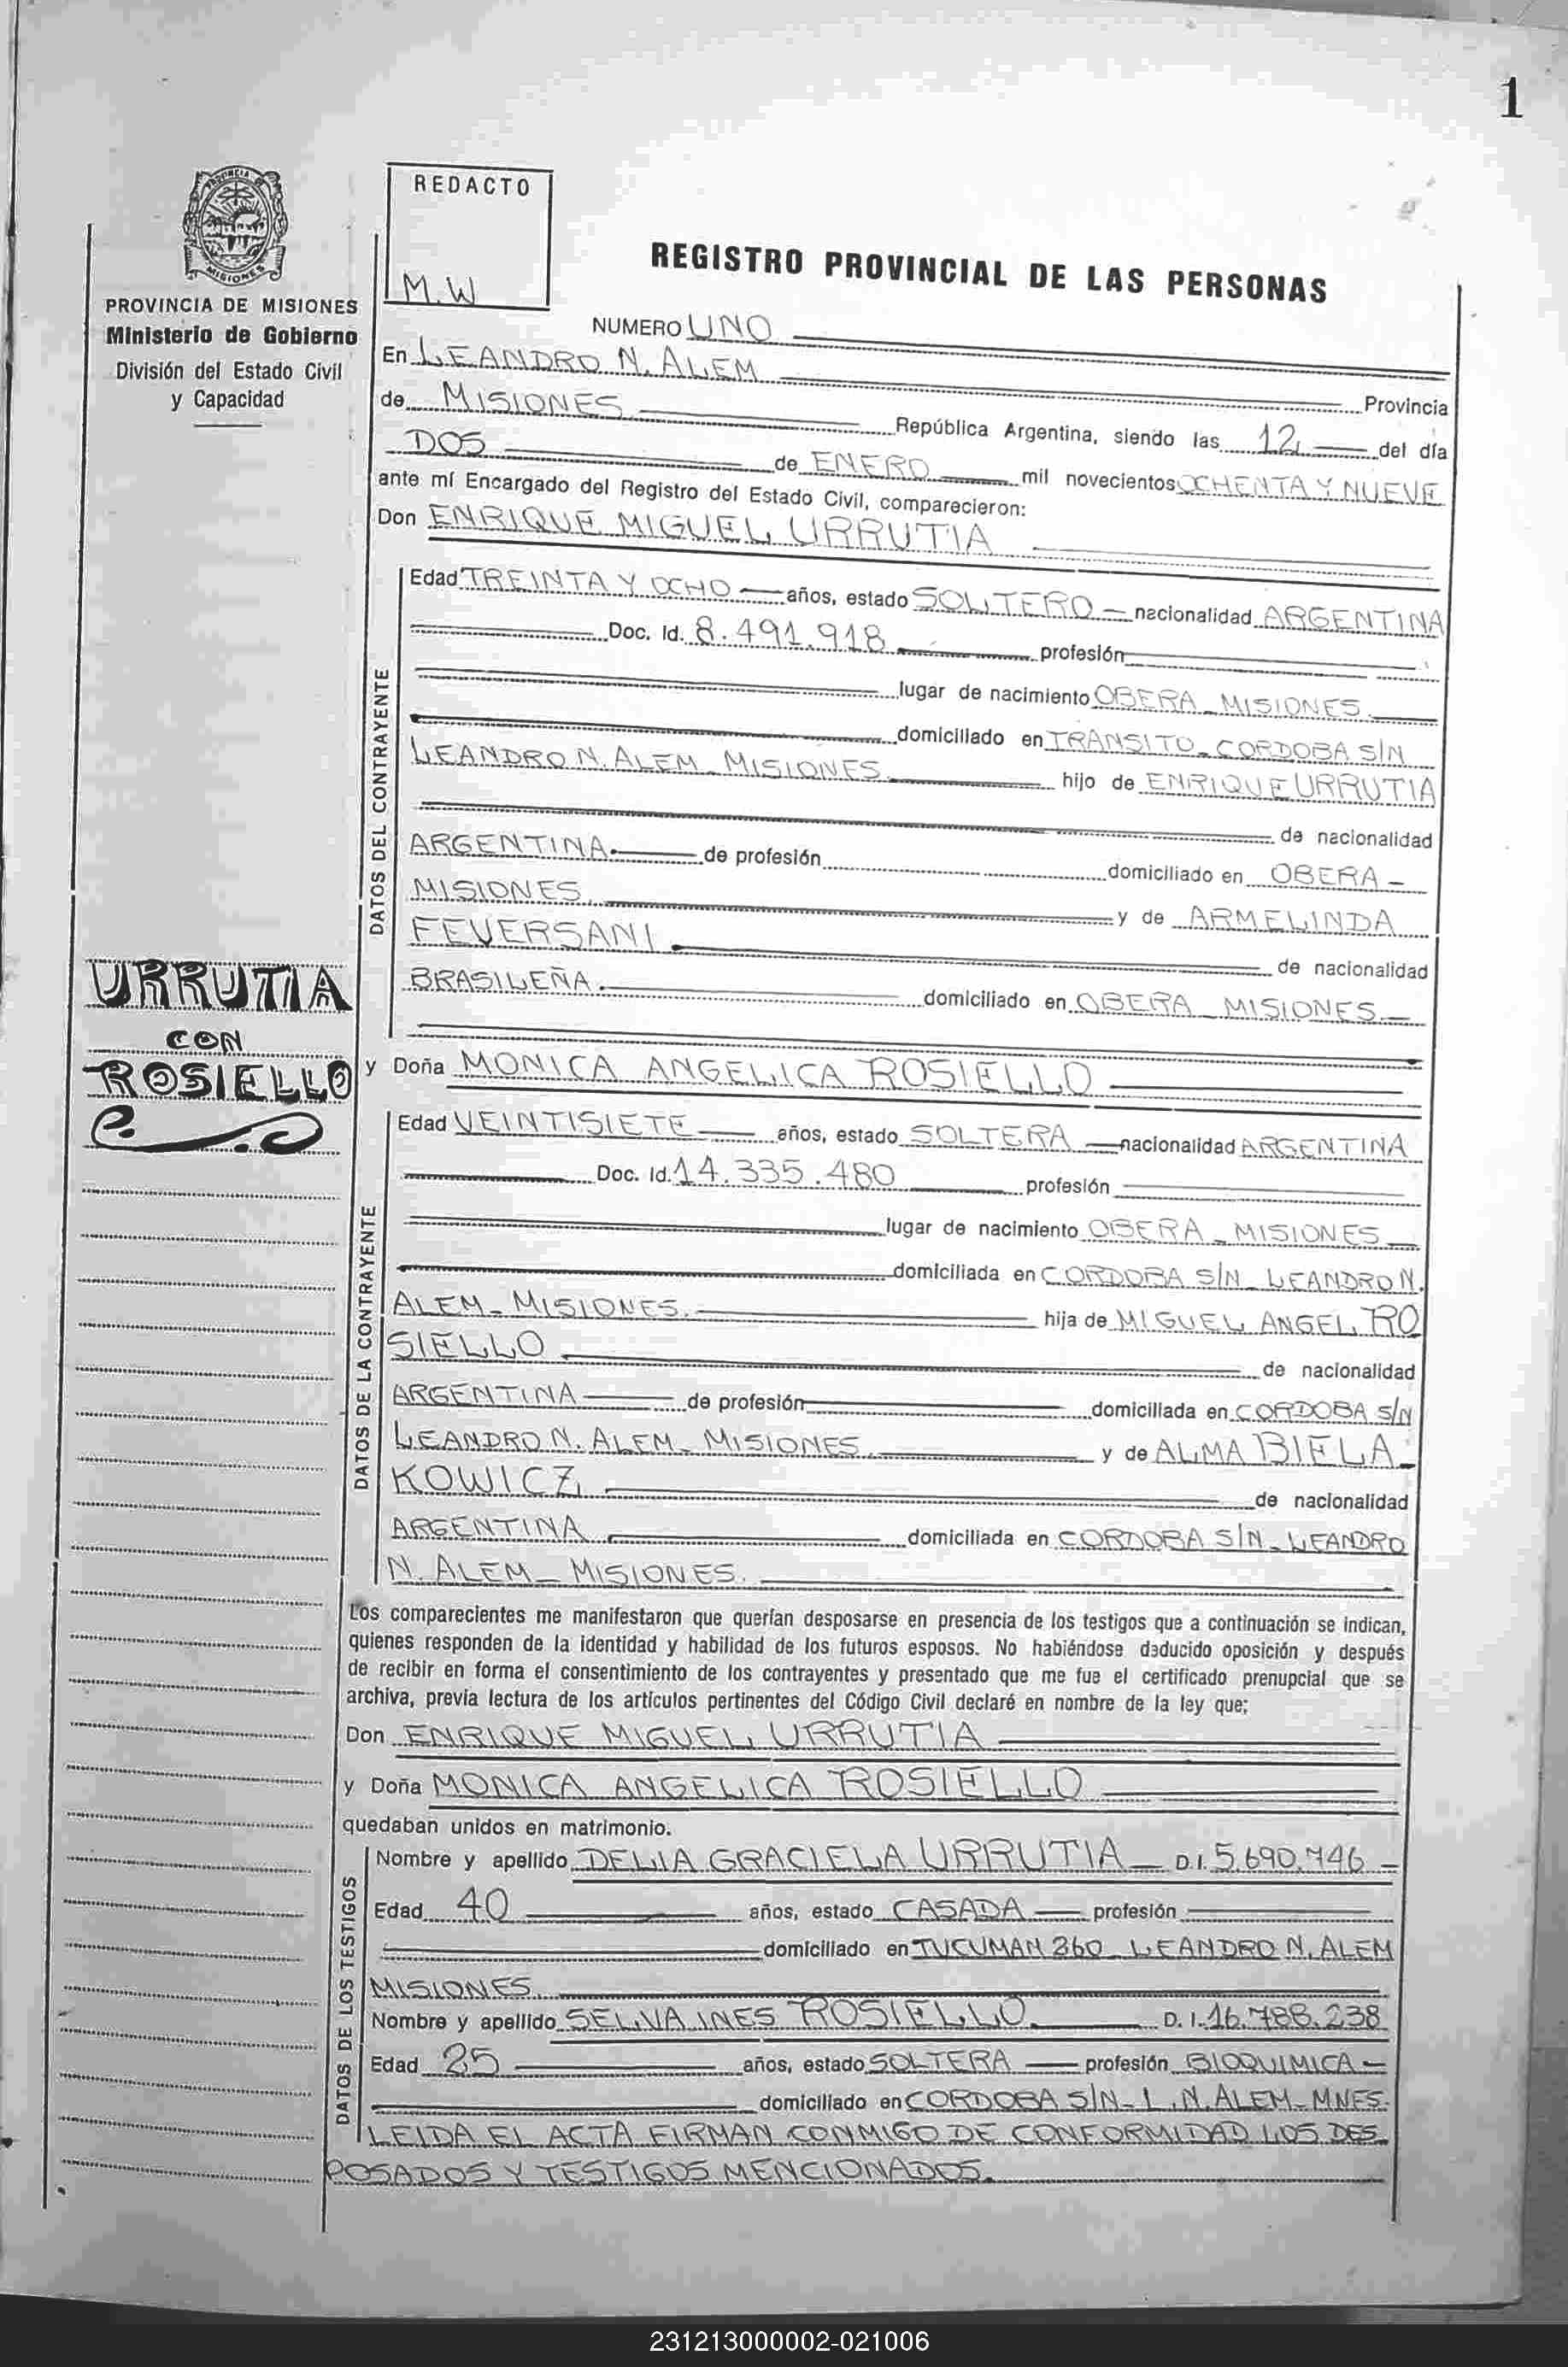 1
REDACTO
M.W
PROVINCIA DE MISIONES
Ministerio de Gobierno
División del Estado Civil
y Capacidad
REGISTRO PROVINCIAL DE LAS PERSONAS
NUMERO UNO
En LEANDRO N. ALEM Provincia
de MISIONES República Argentina, siendo las 12 del día
DOS de ENERO mil novecientos OCHENTA Y NUEVE
ante mí Encargado del Registro del Estado Civil, comparecieron:
Don ENRIQUE MIGUEL URRUTIA
DATOS DEL CONTRAYENTE
Edad TREINTA Y OCHO años, estado SOLTERO nacionalidad ARGENTINA
Doc. Id. 8.491.918 profesión
lugar de nacimiento OBERA - MISIONES.
domiciliado en TRANSITO - CORDOBA S/N
LEANDRO N. ALEM - MISIONES. hijo de ENRIQUE URRUTIA
de nacionalidad
ARGENTINA de profesión domiciliado en OBERA -
MISIONES. y de ARMELINDA
FEVERSANI de nacionalidad
BRASILEÑA. domiciliado en OBERA - MISIONES.
URRUTIA
CON
ROSIELLO
y Doña MONICA ANGELICA ROSIELLO
DATOS DE LA CONTRAYENTE
Edad VEINTISIETE años, estado SOLTERA nacionalidad ARGENTINA
Doc. Id. 14.335.480 profesión
lugar de nacimiento OBERA - MISIONES
domiciliada en CORDOBA S/N - LEANDRO N.
ALEM - MISIONES. hija de MIGUEL ANGEL RO
SIELLO de nacionalidad
ARGENTINA de profesión domiciliada en CORDOBA S/N
LEANDRO N. ALEM - MISIONES. y de ALMA BIELA-
KOWICZ de nacionalidad
ARGENTINA domiciliada en CORDOBA S/N - LEANDRO
N. ALEM - MISIONES.
Los comparecientes me manifestaron que querían desposarse en presencia de los testigos que a continuación se indican,
quienes responden de la identidad y habilidad de los futuros esposos. No habiéndose deducido oposición y después
de recibir en forma el consentimiento de los contrayentes y presentado que me fue el certificado prenupcial que se
archiva, previa lectura de los artículos pertinentes del Código Civil declaré en nombre de la ley que;
Don ENRIQUE MIGUEL URRUTIA
y Doña MONICA ANGELICA ROSIELLO
quedaban unidos en matrimonio.
DATOS DE LOS TESTIGOS
Nombre y apellido DELIA GRACIELA URRUTIA D.I. 5.690.746
Edad 40 años, estado CASADA profesión
domiciliado en TUCUMAN 260 LEANDRO N. ALEM
MISIONES.
Nombre y apellido SELVA INES ROSIELLO. D.I. 16.788.238
Edad 25 años, estado SOLTERA profesión BIOQUIMICA -
domiciliado en CORDOBA S/N - L.N. ALEM - MNES.
LEIDA EL ACTA FIRMAN CONMIGO DE CONFORMIDAD LOS DES
POSADOS Y TESTIGOS MENCIONADOS.
231213000002-021006